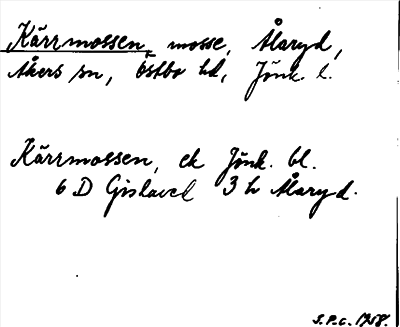 Kärrmossen, mosse, Ålaryd,
Åkers sn, Östbo hd, Jönk. l.
Kärrmossen, ek Jönk. bl.
6 D Gislaved 3 h Ålaryd.
S.P.C. 1958.